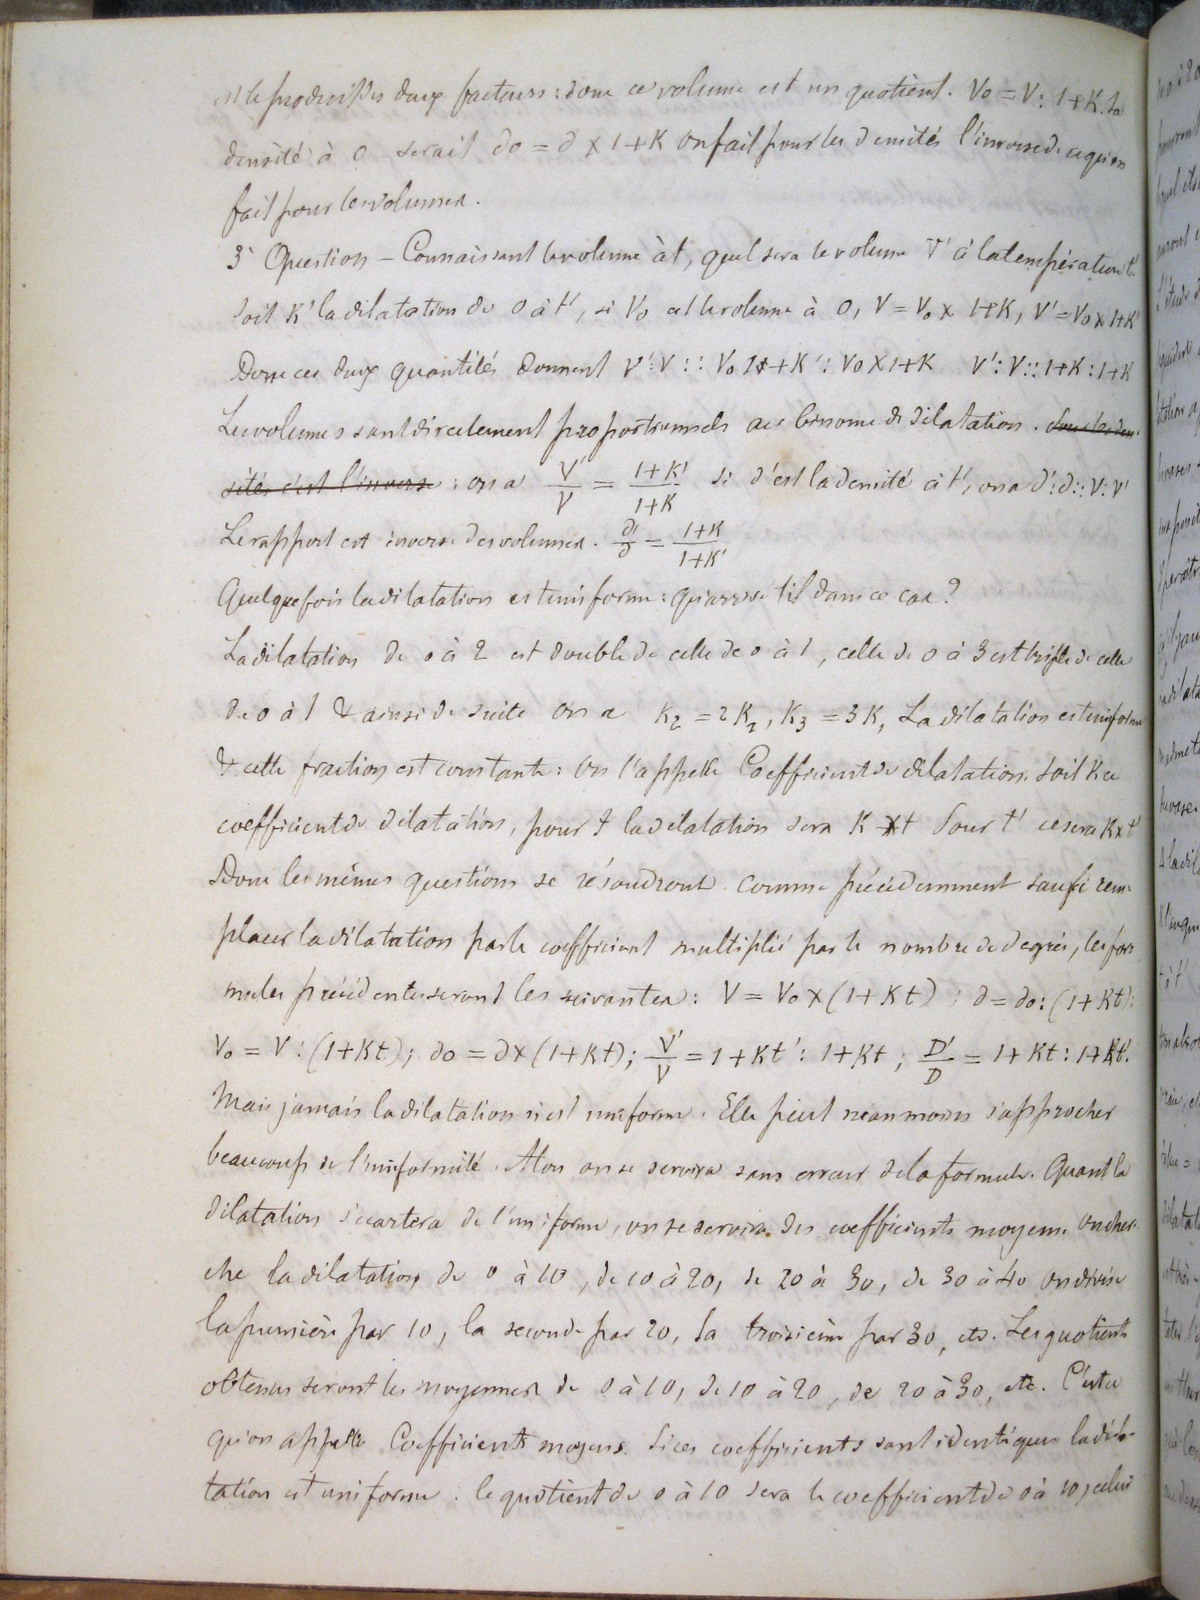 est le produit des deux facteurs : donc ce volume est un quotient. V0 = V : 1+K. La
densité à 0 serait d0 = d × 1+K on fait pour les densités l'inverse de ce qu'on
fait pour les volumes.
3° Question – Connaissant le volume à t, quel sera le volume V' à la température t'.
Soit K' la dilatation de 0 à t', si V0 est le volume à 0, V = V0 × 1+K, V' = V0 × 1+K'
Donc ces deux quantités donnent V' : V :: V0 1+K' : V0 × 1+K V' : V :: 1+K : 1+K
Les volumes sont directement proportionnels au binome de dilatation. Pour les den-
sités c'est l'inverse : on a V'/V = 1+K'/1+K si d' est la densité à t', on a d' : d :: V : V'
Le rapport est inverse des volumes. d'/d = 1+K/1+K'
Quelquefois la dilatation est uniforme : qu'arrive t'il dans ce cas ?
La dilatation de 0 à 2 est double de celle de 0 à 1, celle de 0 à 3 est triple de celle
de 0 à 1 & ainsi de suite on a K2 = 2K1, K3 = 3K, La dilatation est uniforme
& cette fraction est constante : on l'appelle Coefficient de dilatation. Soit K ce
coefficient de dilatation, pour t la dilatation sera K × t Pour t' ce sera K × t'
Donc les mêmes questions se résoudront comme précédemment sauf à rem-
placer la dilatation par le coefficient multiplié par le nombre de degrés, les for-
mules précédentes seront les suivantes : V = V0 × (1+Kt) ; d = d0 : (1+Kt) :
V0 = V : (1+Kt) ; d0 = d × (1+Kt) ; V'/V = 1+Kt' : 1+Kt ; D'/D = 1+Kt : 1+Kt'.
Mais jamais la dilatation n'est uniforme. Elle peut néanmoins s'approcher
beaucoup de l'uniformité. Alors on se servira sans erreur de la formule. Quant la
dilatation s'écartera de l'uniforme, on se servira des coefficients moyens. on cher-
che la dilatation de 0 à 10, de 10 à 20, de 20 à 30, de 30 à 40 on divise
la première par 10, la seconde par 20, la troisième par 30, etc. Les quotients
obtenus seront les moyennes de 0 à 10, de 10 à 20, de 20 à 30, etc. C'est ce
qu'on appelle Coefficients moyens. Si ces coefficients sont identiques la dila-
tation est uniforme. le quotient de 0 à 10 sera le coefficient de 0 à 10, celui